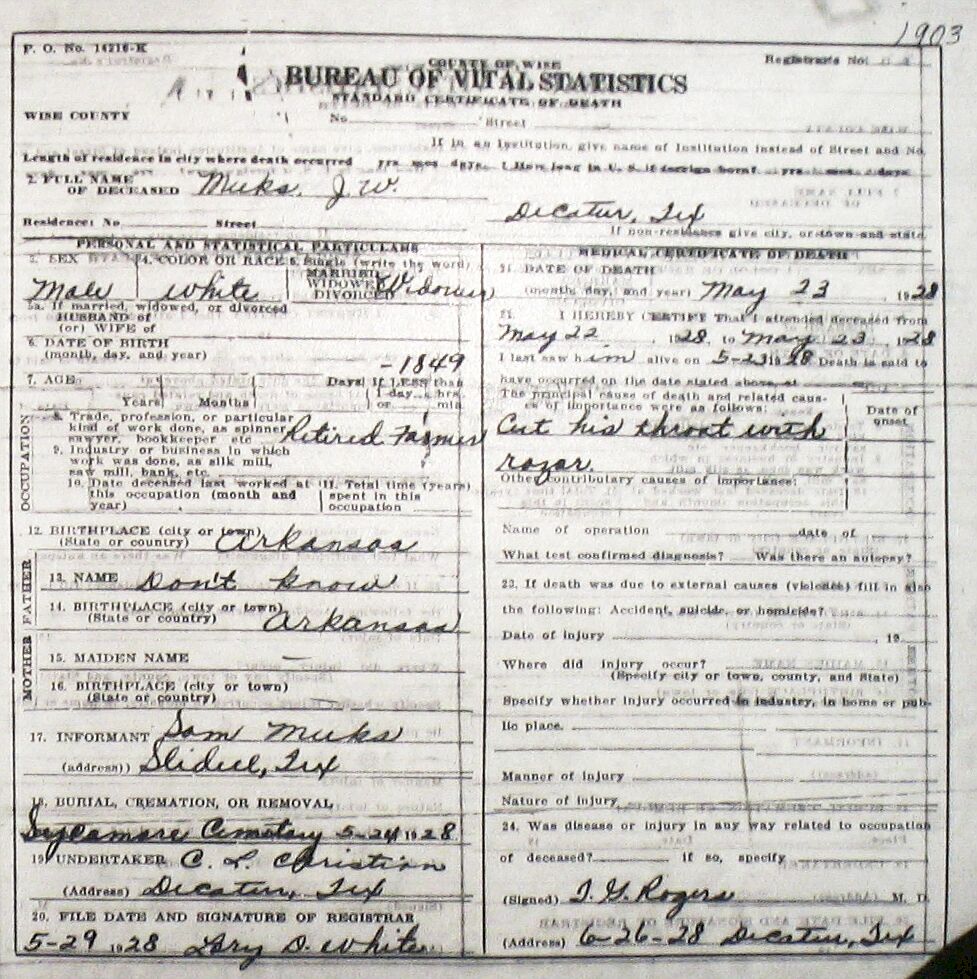 1903
P. O. No. 14216-K
COUNTY OF WISE
Registrar's No.
BUREAU OF VITAL STATISTICS
STANDARD CERTIFICATE OF DEATH
WISE COUNTY
No. Street
If in an Institution, give name of Institution instead of Street and No.
Length of residence in city where death occurred yrs mos days. How long in U. S. if foreign born? yrs mos days
2. FULL NAME
OF DECEASED Meeks, J. W.
Decatur, Tex
Residence: No. Street
If non-residence give city, or town and state
PERSONAL AND STATISTICAL PARTICULARS
3. SEX
Male
4. COLOR OR RACE
White
5. Single (write the word)
MARRIED
WIDOWED
DIVORCED
Widower
5a. If married, widowed, or divorced
HUSBAND of
(or) WIFE of
6. DATE OF BIRTH
(month, day, and year)
-1849
7. AGE
Years Months Days If LESS than
1 day hrs.
or min.
OCCUPATION
8. Trade, profession, or particular
kind of work done, as spinner
sawyer, bookkeeper etc
Retired Farmer
9. Industry or business in which
work was done, as silk mill,
saw mill, bank, etc.
10. Date deceased last worked at
this occupation (month and
year)
11. Total time (years)
spent in this
occupation
12. BIRTHPLACE (city or town)
(State or country) Arkansas
FATHER
13. NAME Don't know
14. BIRTHPLACE (city or town)
(State or country) Arkansas
MOTHER
15. MAIDEN NAME —
16. BIRTHPLACE (city or town)
(State or country)
17. INFORMANT Sam Meeks
(address)) Slidell, Tex
18. BURIAL, CREMATION, OR REMOVAL
Sycamore Cemetary 5-24 1928
19. UNDERTAKER C. L. Christian
(Address) Decatur, Tex
20. FILE DATE AND SIGNATURE OF REGISTRAR
5-29 1928 D. White
MEDICAL CERTIFICATE OF DEATH
21. DATE OF DEATH
(month, day, and year) May 23, 1928
I HEREBY CERTIFY That I attended deceased from
May 22, 1928, to May 23, 1928
I last saw him alive on 5-23 1928 Death is said to
have occurred on the date stated above, at
The principal cause of death and related caus-
es of importance were as follows:
Date of
onset
Cut his throat with
razor.
Other contributary causes of importance:
Name of operation date of
What test confirmed diagnosis? Was there an autopsy?
23. If death was due to external causes (violence) fill in also
the following: Accident, suicide, or homicide?
Date of injury , 19
Where did injury occur?
(Specify city or town, county, and State)
Specify whether injury occurred in industry, in home or pub-
lic place.
Manner of injury
Nature of injury
24. Was disease or injury in any way related to occupation
of deceased? if so, specify
(Signed) T. G. Rogers M. D.
(Address) 6-26-28 Decatur, Tex